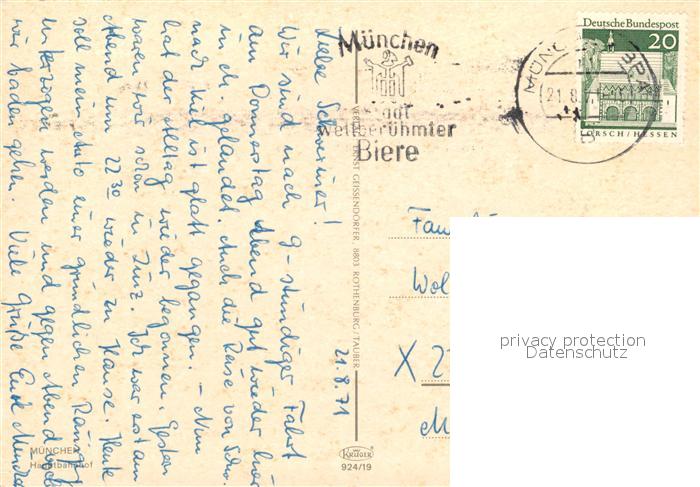 21.8.71
Liebe Schweriner!
Wir sind nach 9-stündiger Fahrt
am Donnerstag Abend gut wieder hier
in M. gelandet. Auch die Reise von Schw.
nach hier ist glatt gegangen. – Nun
hat der Alltag wieder begonnen. Gestern
waren wir schon in Linz. Ich war erst am
Abend um 22 30 wieder zu Hause. Heute
soll mein Auto einer gründlichen
unterzogen werden und gegen Abend
wir baden gehen. Viele Grüße Eure
MÜNCHEN
Hauptbahnhof
VERLAG ERNST GEISSENDÖRFER, 8803 ROTHENBURG/TAUBER
KRÜGER
924/19
München
weltberühmter
Biere
Deutsche Bundespost
20
LORSCH/HESSEN
MÜNCHEN
21.8.
Fam
Wol
X 2
privacy protection
Datenschutz